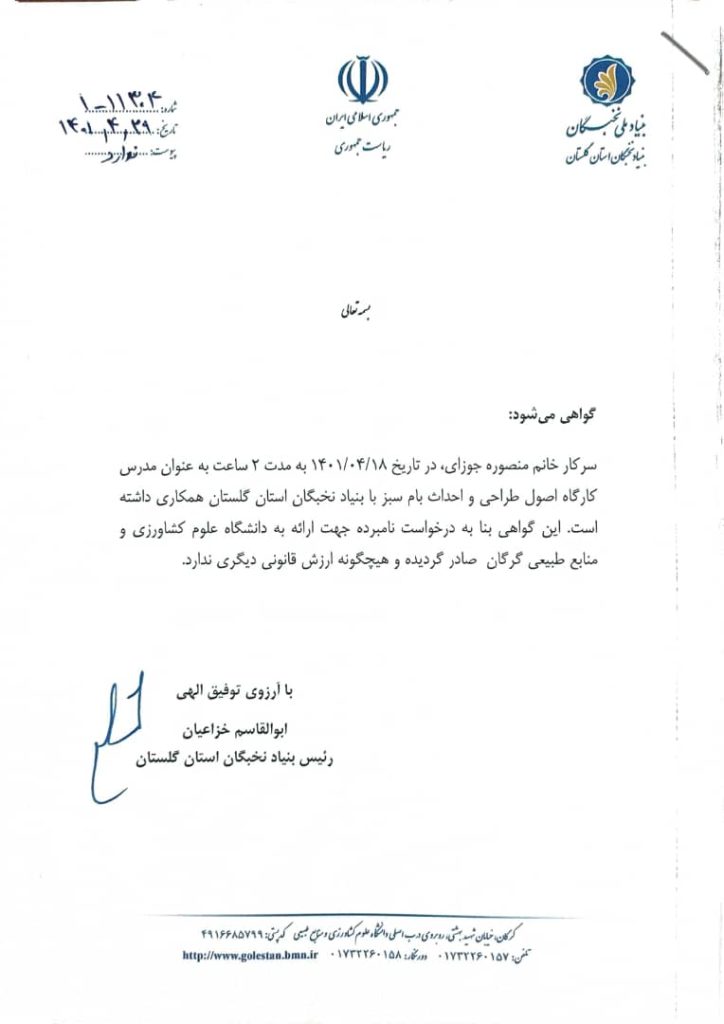 بنیاد ملی نخبگان
بنیاد نخبگان استان گلستان
جمهوری اسلامی ایران
ریاست جمهوری
شماره: ۱۱۳۰۴-۱
تاریخ: ۱۴۰۱,۴,۲۹
پیوست: ندارد
بسمه تعالی
گواهی می‌شود:
سرکار خانم منصوره جوزای، در تاریخ ۱۴۰۱/۰۴/۱۸ به مدت ۲ ساعت به عنوان مدرس
کارگاه اصول طراحی و احداث بام سبز با بنیاد نخبگان استان گلستان همکاری داشته
است. این گواهی بنا به درخواست نامبرده جهت ارائه به دانشگاه علوم کشاورزی و
منابع طبیعی گرگان صادر گردیده و هیچگونه ارزش قانونی دیگری ندارد.
با آرزوی توفیق الهی
ابوالقاسم خزاعیان
رئیس بنیاد نخبگان استان گلستان
گرگان، خیابان شهید بهشتی، روبروی درب اصلی دانشگاه علوم کشاورزی و منابع طبیعی کد پستی: ۴۹۱۶۶۸۵۷۹۹
تلفن: ۰۱۷۳۲۲۶۰۱۵۷ دورنگار: ۰۱۷۳۲۲۶۰۱۵۸ http://www.golestan.bmn.ir